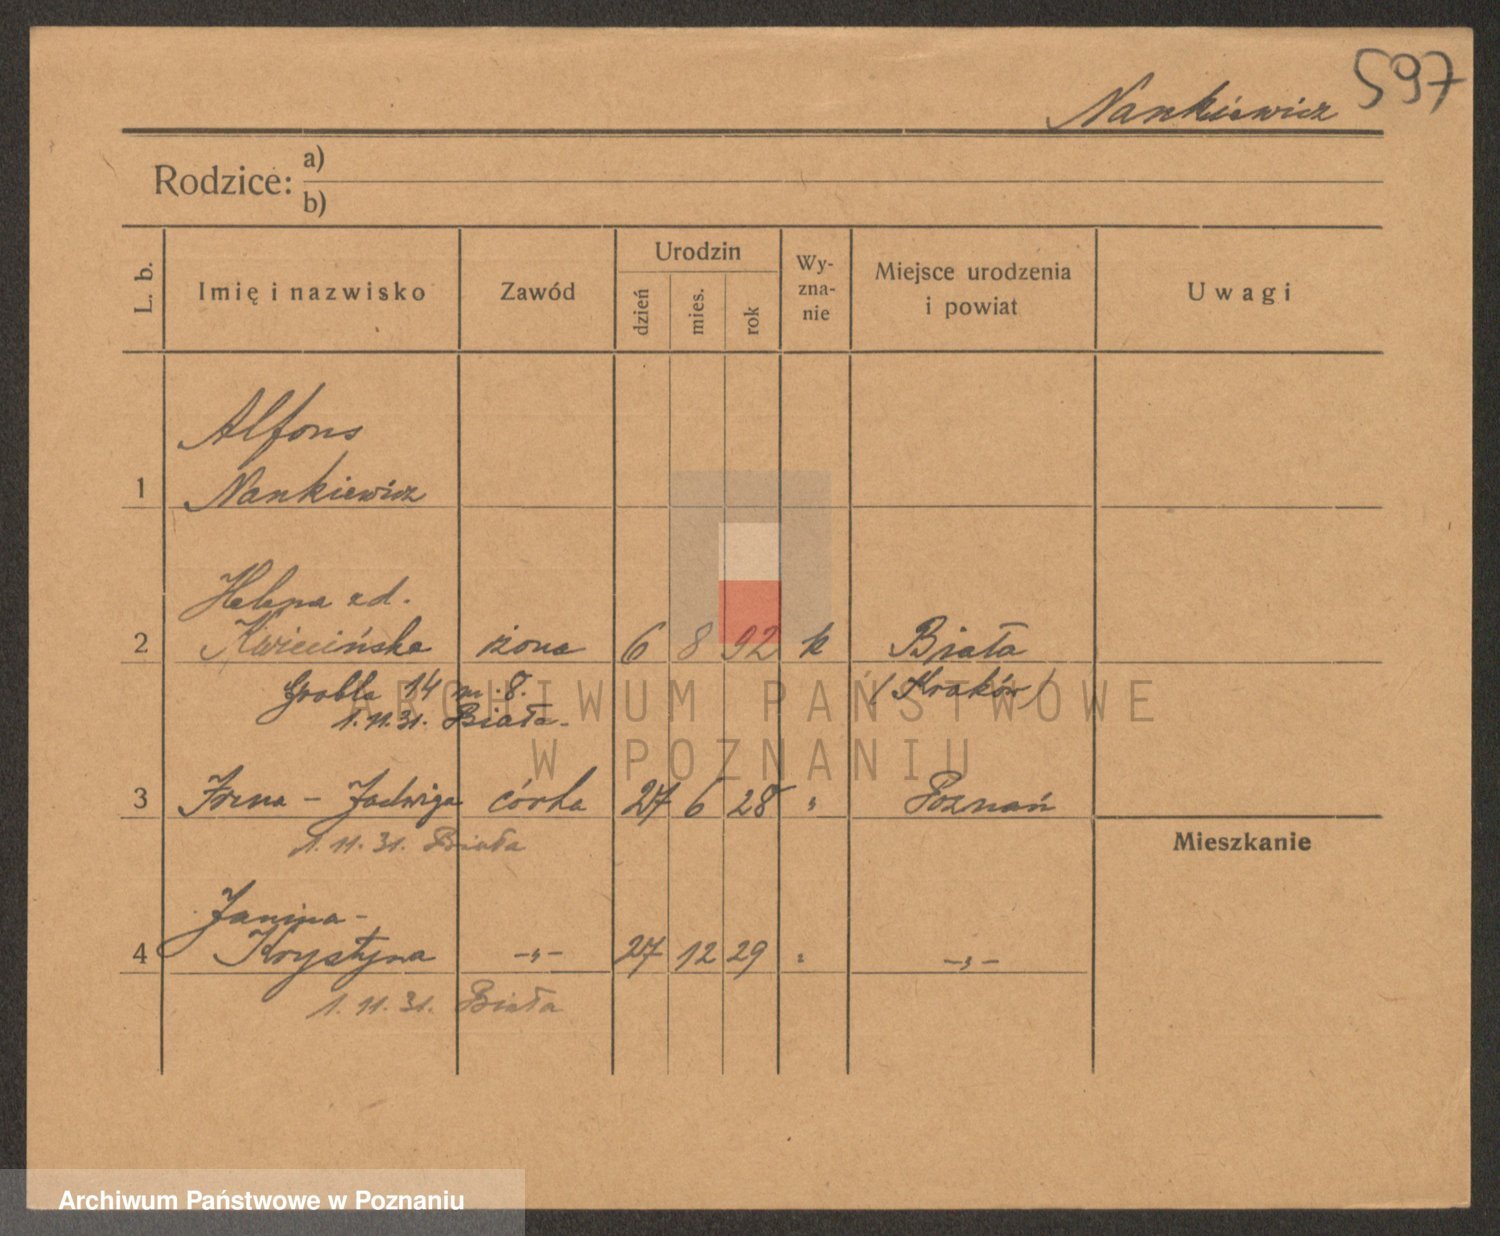 597
Nankiewicz
Rodzice: a)
b)
L. b.
Imię i nazwisko
Zawód
Urodzin
dzień
mies.
rok
Wy-
zna-
nie
Miejsce urodzenia
i powiat
Uwagi
Alfons
1 Nankiewicz
Helena zd.
2 Kwiecińska żona 6 8 92 k Biała
Grobla 14 m. 8. (Kraków)
1.11.31. Biała.
3 Irena - Jadwiga córka 27 6 28 " Poznań
1.11.31. Biała
Mieszkanie
Janina-
4 Krystyna -"- 27 12 29 " -"-
1.11.31. Biała
ARCHIWUM PAŃSTWOWE
W POZNANIU
Archiwum Państwowe w Poznaniu